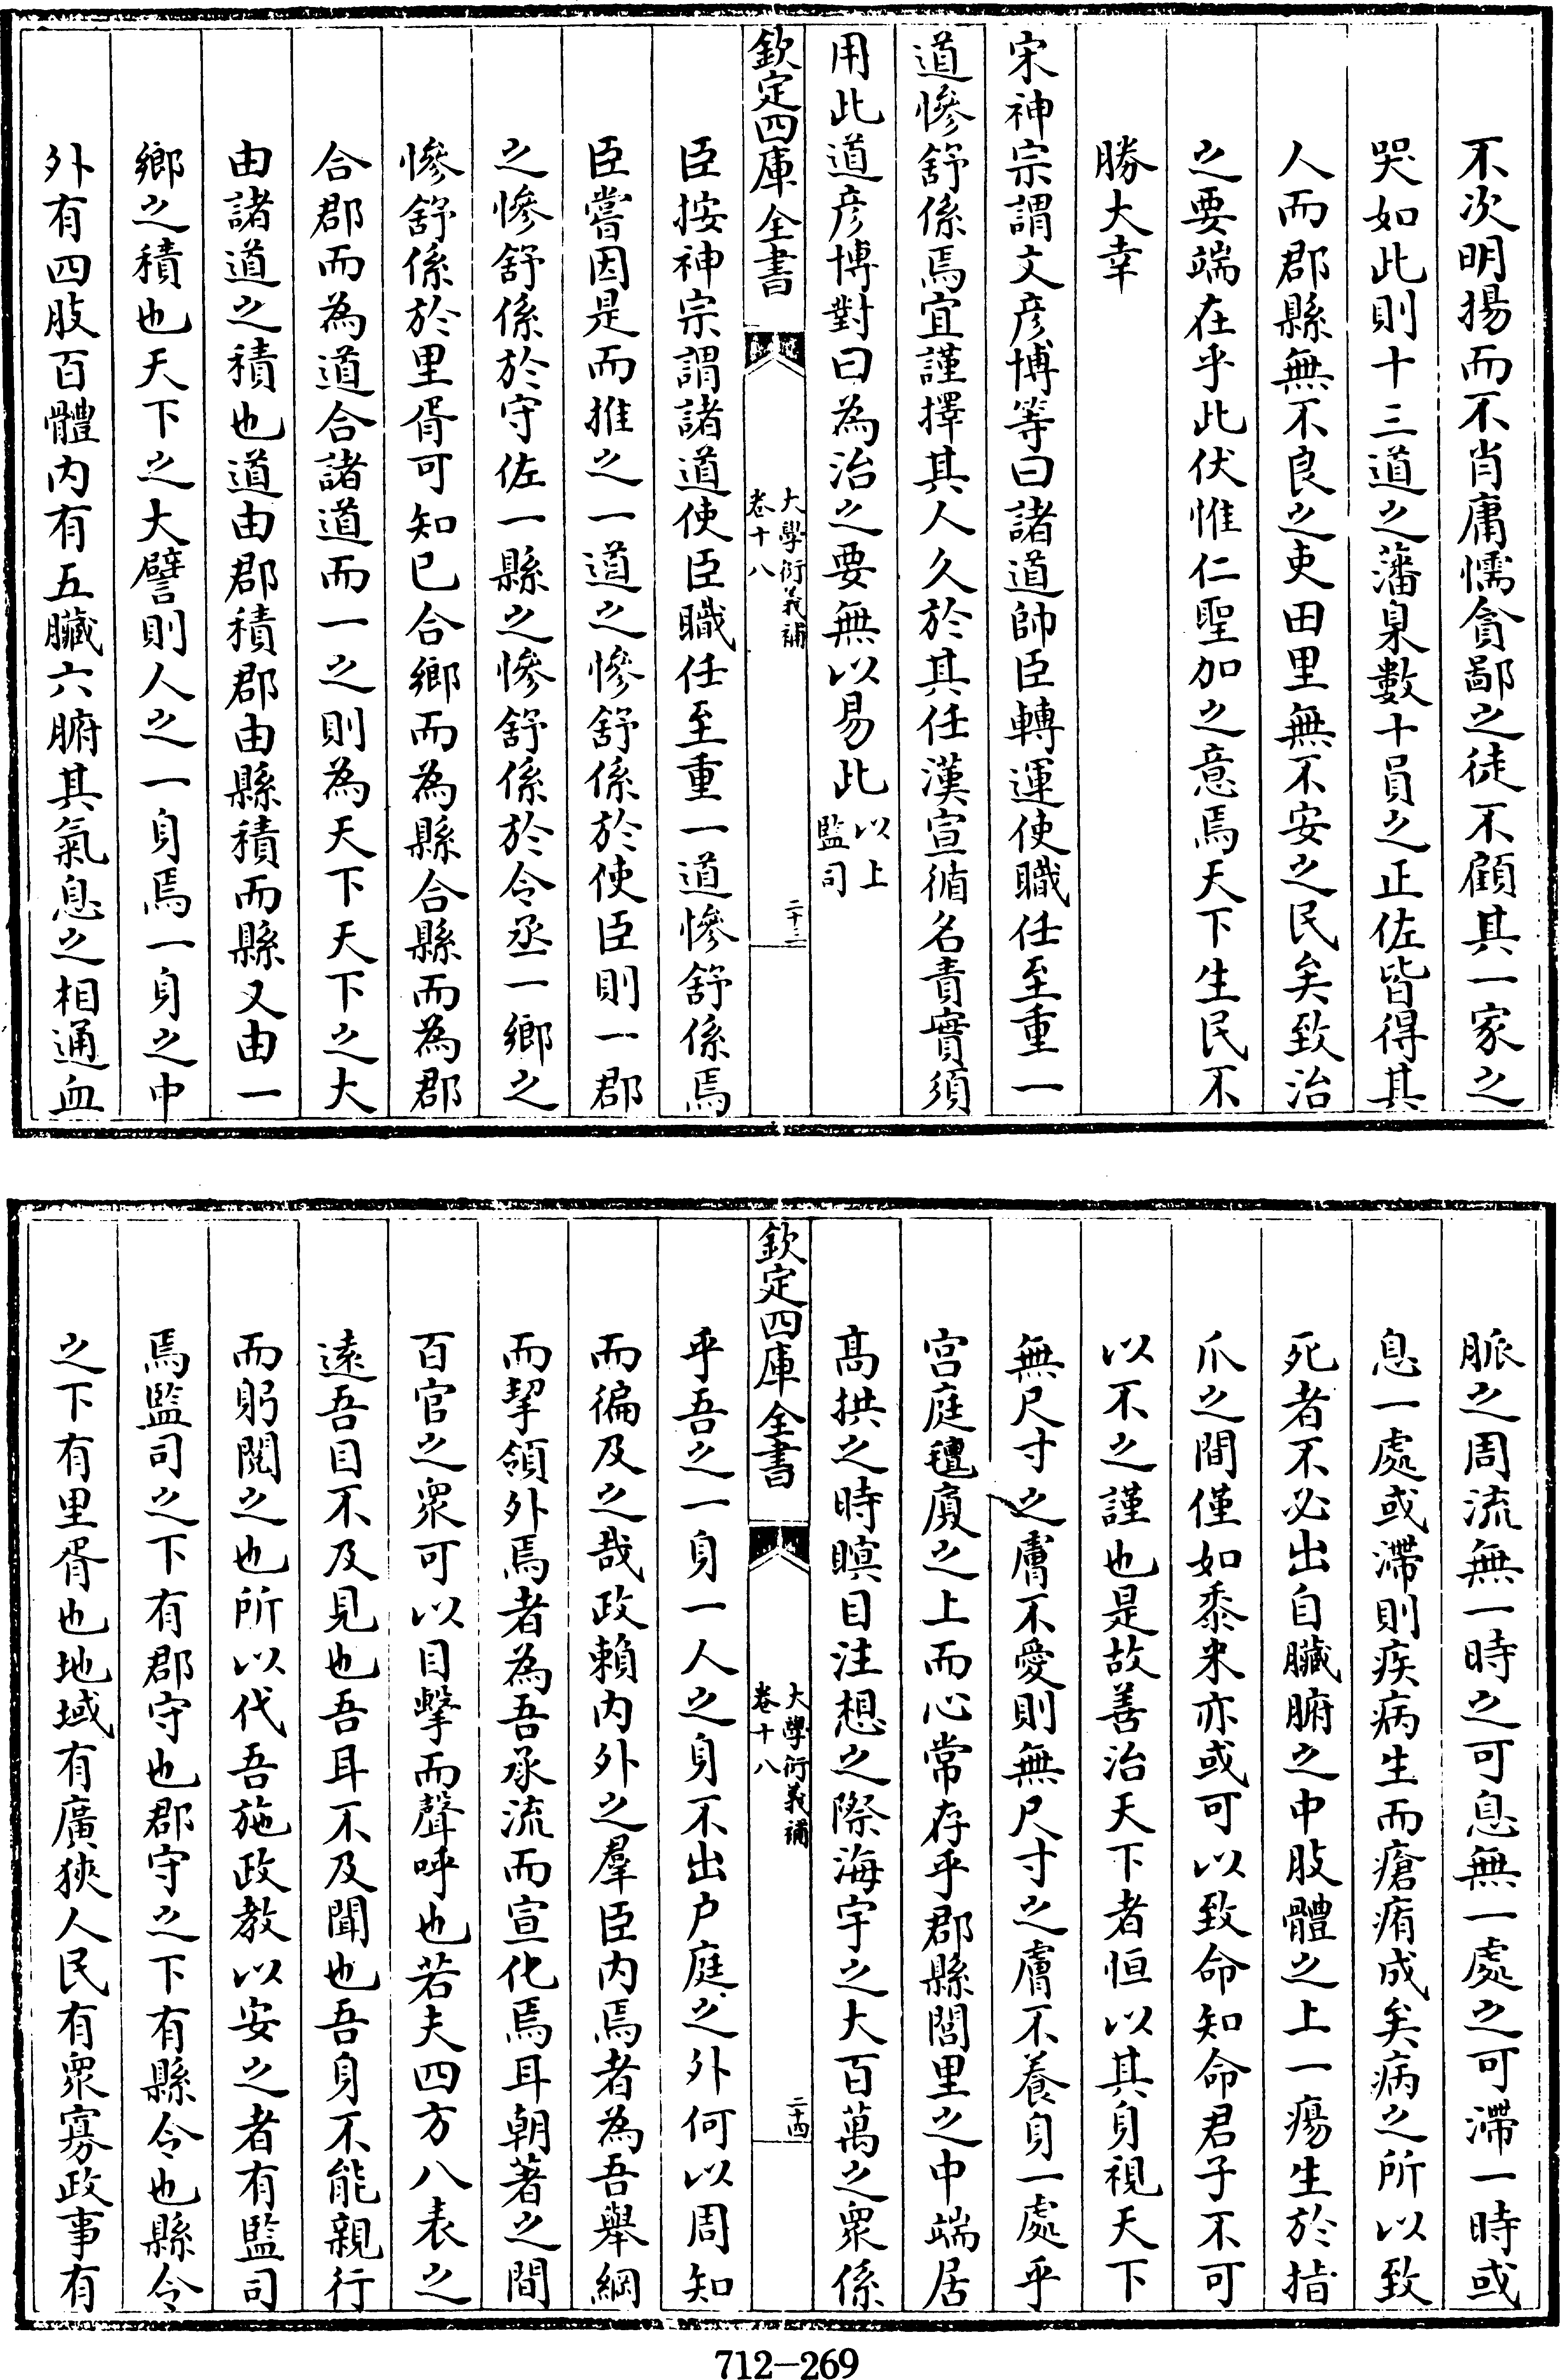 不次明揚而不肖庸懦貪鄙之徒不顧其一家之
哭如此則十三道之藩臬數十員之正佐皆得其
人而郡縣無不良之吏田里無不安之民矣致治
之要端在乎此伏惟仁聖加之意焉天下生民不
勝大幸
宋神宗謂文彦博等曰諸道帥臣轉運使職任至重一
道慘舒係焉宜謹擇其人久於其任漢宣循名責實須
用此道彦博對曰為治之要無以易此以上監司
欽定四庫全書 大學衍義補 卷十八 二十三
臣按神宗謂諸道使臣職任至重一道慘舒係焉
臣嘗因是而推之一道之慘舒係於使臣則一郡
之慘舒係於守佐一縣之慘舒係於令丞一鄉之
慘舒係於里胥可知已合鄉而為縣合縣而為郡
合郡而為道合諸道而一之則為天下天下之大
由諸道之積也道由郡積郡由縣積而縣又由一
鄉之積也天下之大譬則人之一身焉一身之中
外有四肢百體内有五臟六腑其氣息之相通血
脈之周流無一時之可息無一處之可滯一時或
息一處或滯則疾病生而瘡痏成矣病之所以致
死者不必出自臟腑之中肢體之上一瘍生於指
爪之間僅如黍米亦或可以致命知命君子不可
以不之謹也是故善治天下者恒以其身視天下
無尺寸之膚不愛則無尺寸之膚不養身一處乎
宫庭氊廈之上而心常存乎郡縣閭里之中端居
髙拱之時瞑目注想之際海宇之大百萬之衆係
欽定四庫全書 大學衍義補 卷十八 二十四
乎吾之一身一人之身不出户庭之外何以周知
而徧及之哉政賴内外之羣臣内焉者為吾舉綱
而挈領外焉者為吾承流而宣化焉耳朝著之間
百官之衆可以目擊而聲呼也若夫四方八表之
遠吾目不及見也吾耳不及聞也吾身不能親行
而躬閲之也所以代吾施政教以安之者有監司
焉監司之下有郡守也郡守之下有縣令也縣令
之下有里胥也地域有廣狹人民有衆寡政事有
712—269